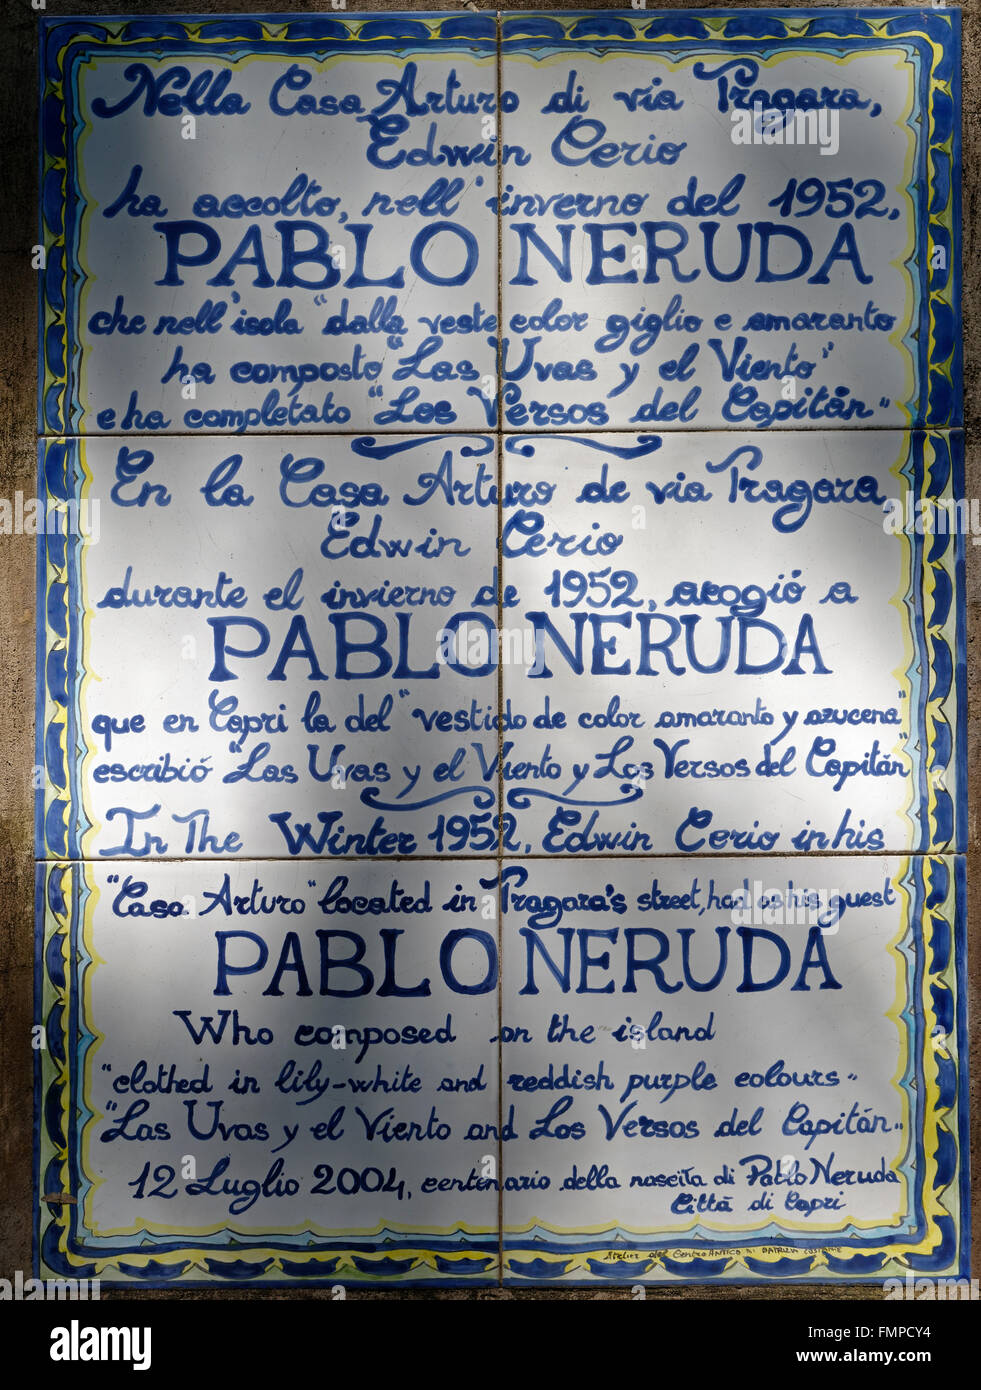 Nella Casa Arturo di via Tragara,
Edwin Cerio
ha accolto, nell' inverno del 1952,
PABLO NERUDA
che nell'isola "dalla veste color giglio e amaranto
ha composto "Las Uvas y el Viento"
e ha completato "Los Versos del Capitán"
En la Casa Arturo de via Tragara,
Edwin Cerio
durante el invierno de 1952, acogió a
PABLO NERUDA
que en Capri la del "vestido de color amaranto y azucena"
escribió "Las Uvas y el Viento y Los Versos del Capitán"
In The Winter 1952, Edwin Cerio in his
"Casa Arturo" located in Tragara's street, had as his guest
PABLO NERUDA
Who composed on the island
"clothed in lily-white and reddish purple colours"
"Las Uvas y el Viento and Los Versos del Capitán"
12 Luglio 2004, centenario della nascita di Pablo Neruda
Città di Capri
Atelier del Centro ANTICO
alamy
Image ID: FMPCY4
www.alamy.com